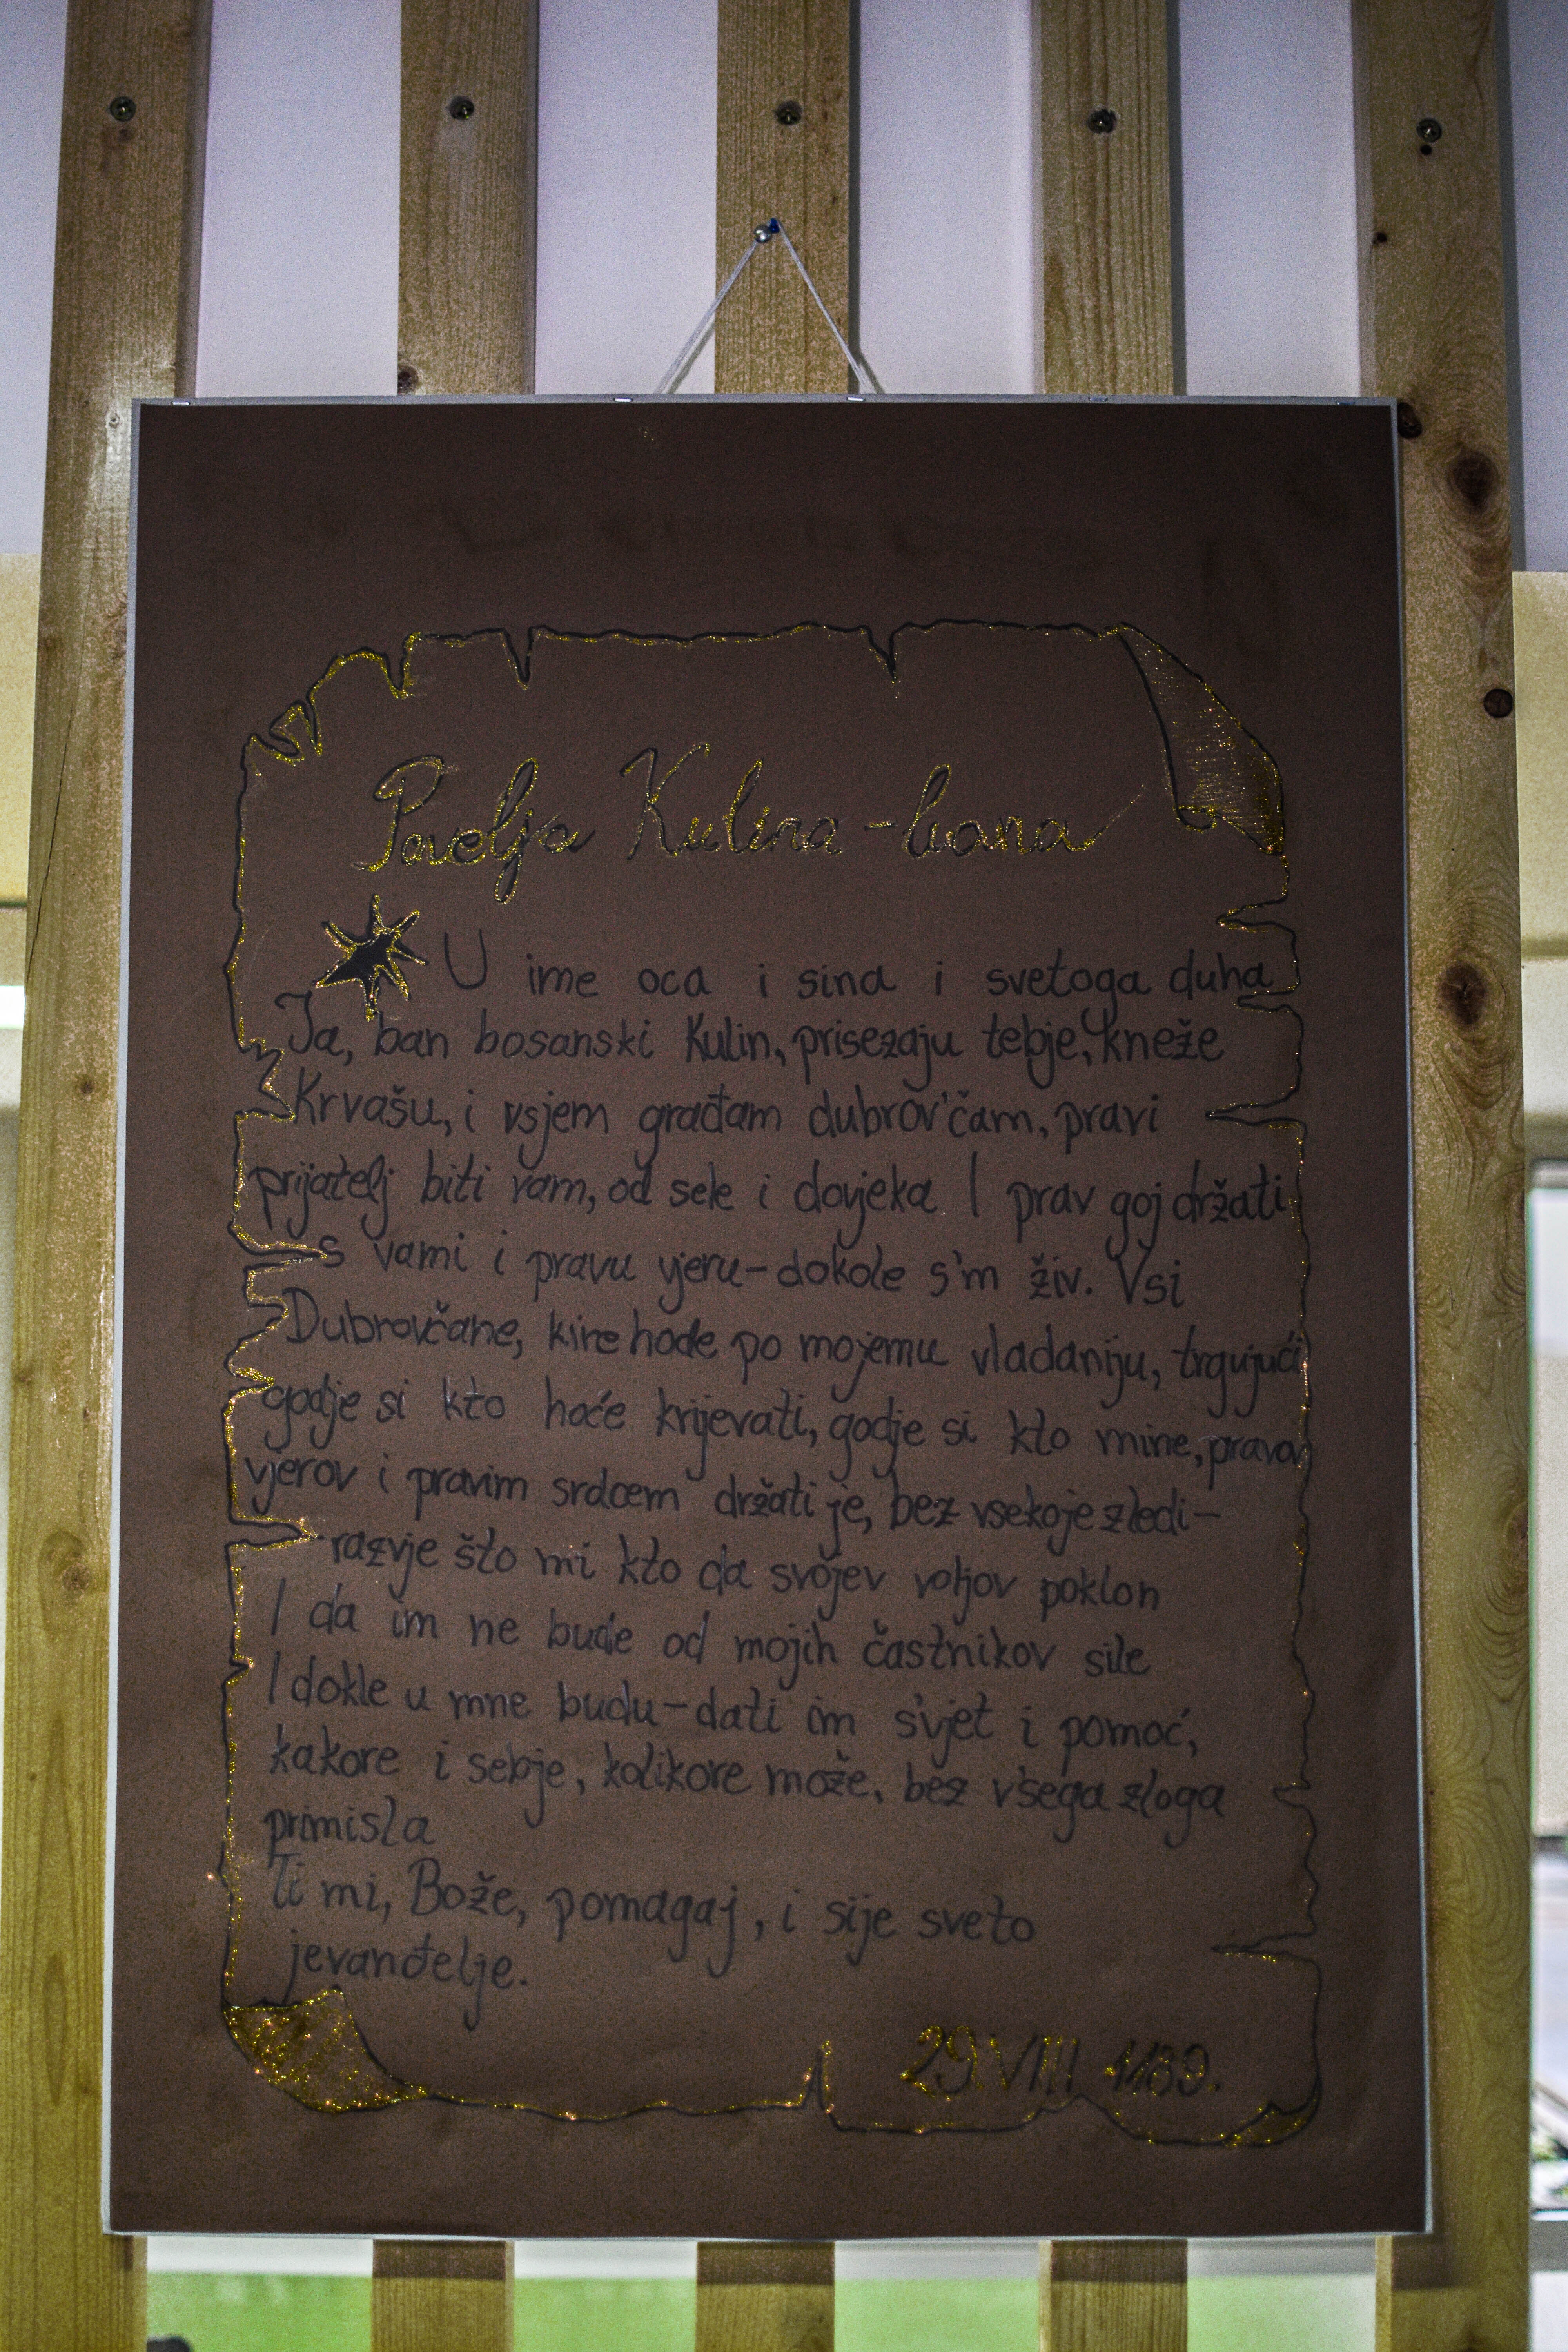 Povelja Kulina-bana
U ime oca i sina i svetoga duha
Ja, ban bosanski Kulin, prisezaju tebje, kneže
Krvašu, i vsjem građam dubrov'čam, pravi
prijatelj biti vam, od sele i dovjeka I prav goj držati
s vami i pravu vjeru-dokole s'm živ. Vsi
Dubrovčane, kire hode po mojemu vladaniju, trgujući
godje si kto hoće krijevati, godje si kto mine, prava
vjerov i pravim srdcem držati je, bez vsekoje zledi-
razvje što mi kto da svojev voljov poklon
I da im ne bude od mojih častnikov sile
I dokle u mne budu-dati im s'vjet i pomoć,
kakore i sebje, kolikore može, bez v'sega zloga
primisla
Ti mi, Bože, pomagaj, i sije sveto
jevanđelje.
29.VIII 1189.